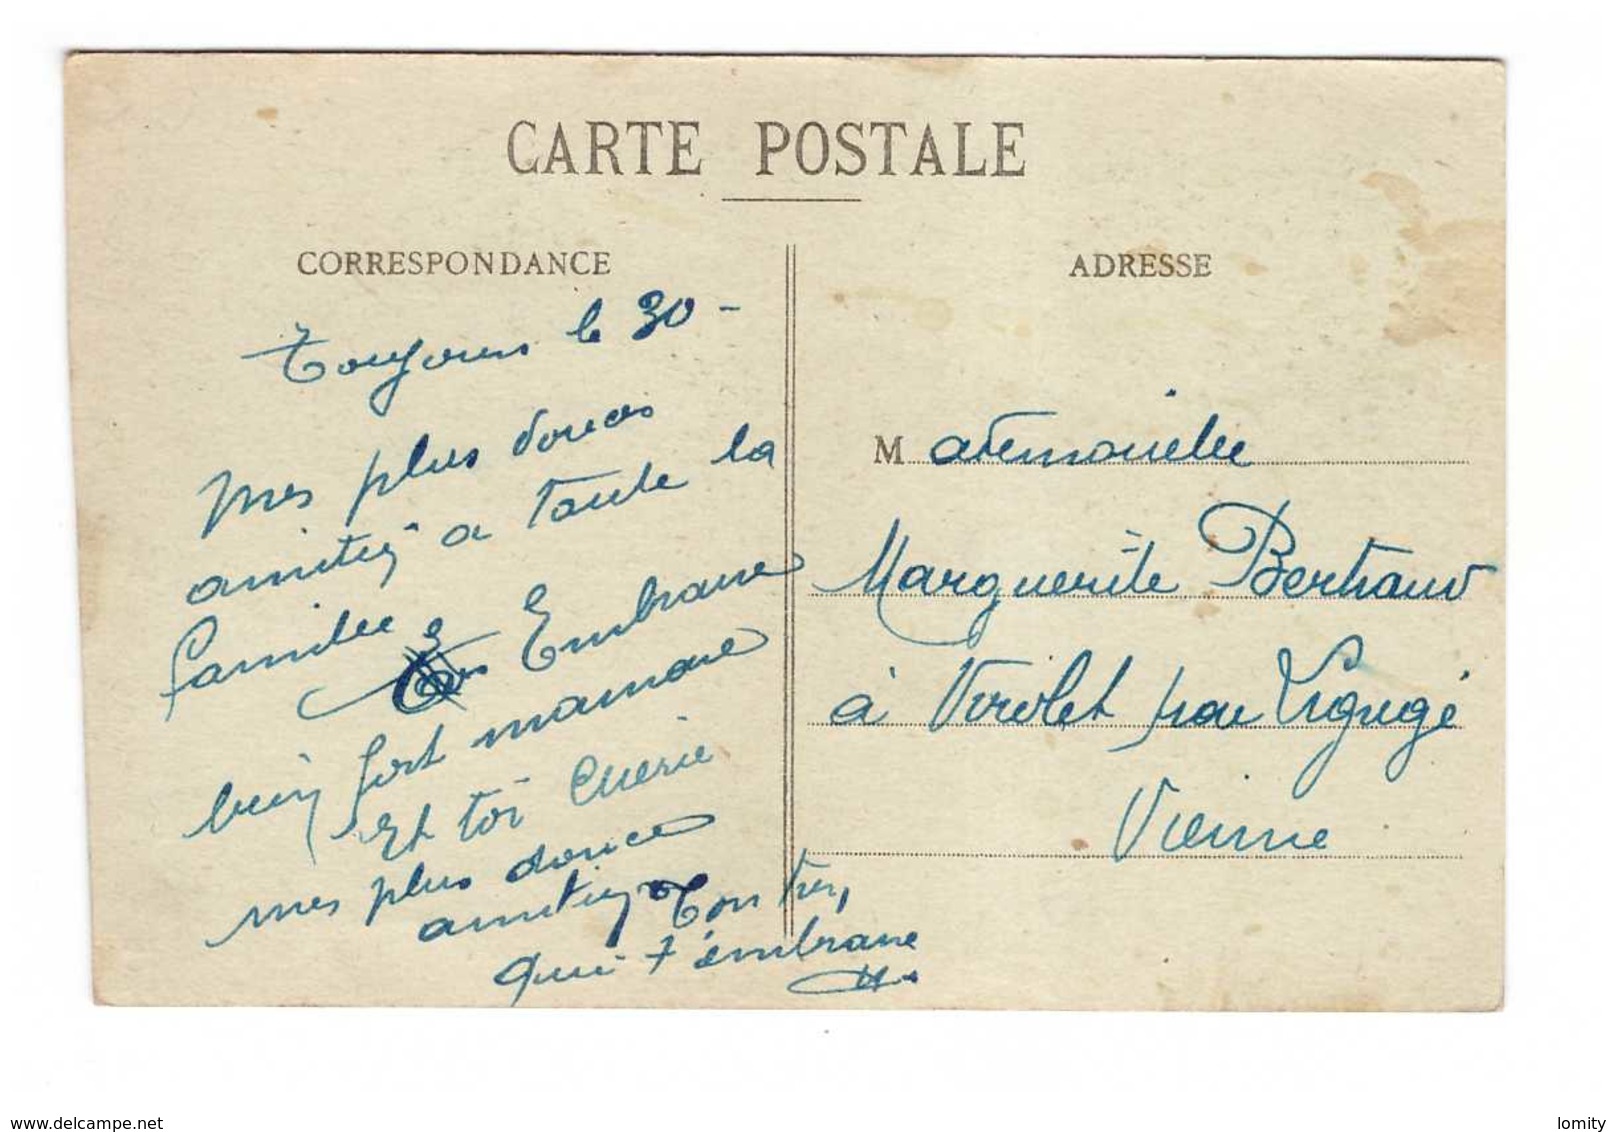 CARTE POSTALE
CORRESPONDANCE
Toujours le 30 -
Mes plus douces
amitiés a toute la
famille
Embrasse
bien fort maman
Et toi Cherie
mes plus douces
amitiés Ton
qui t'embrasse
ADRESSE
Mademoiselle
Marguerite Bertrand
à Virolet par Ligugé
Vienne
www.delcampe.net
lomity